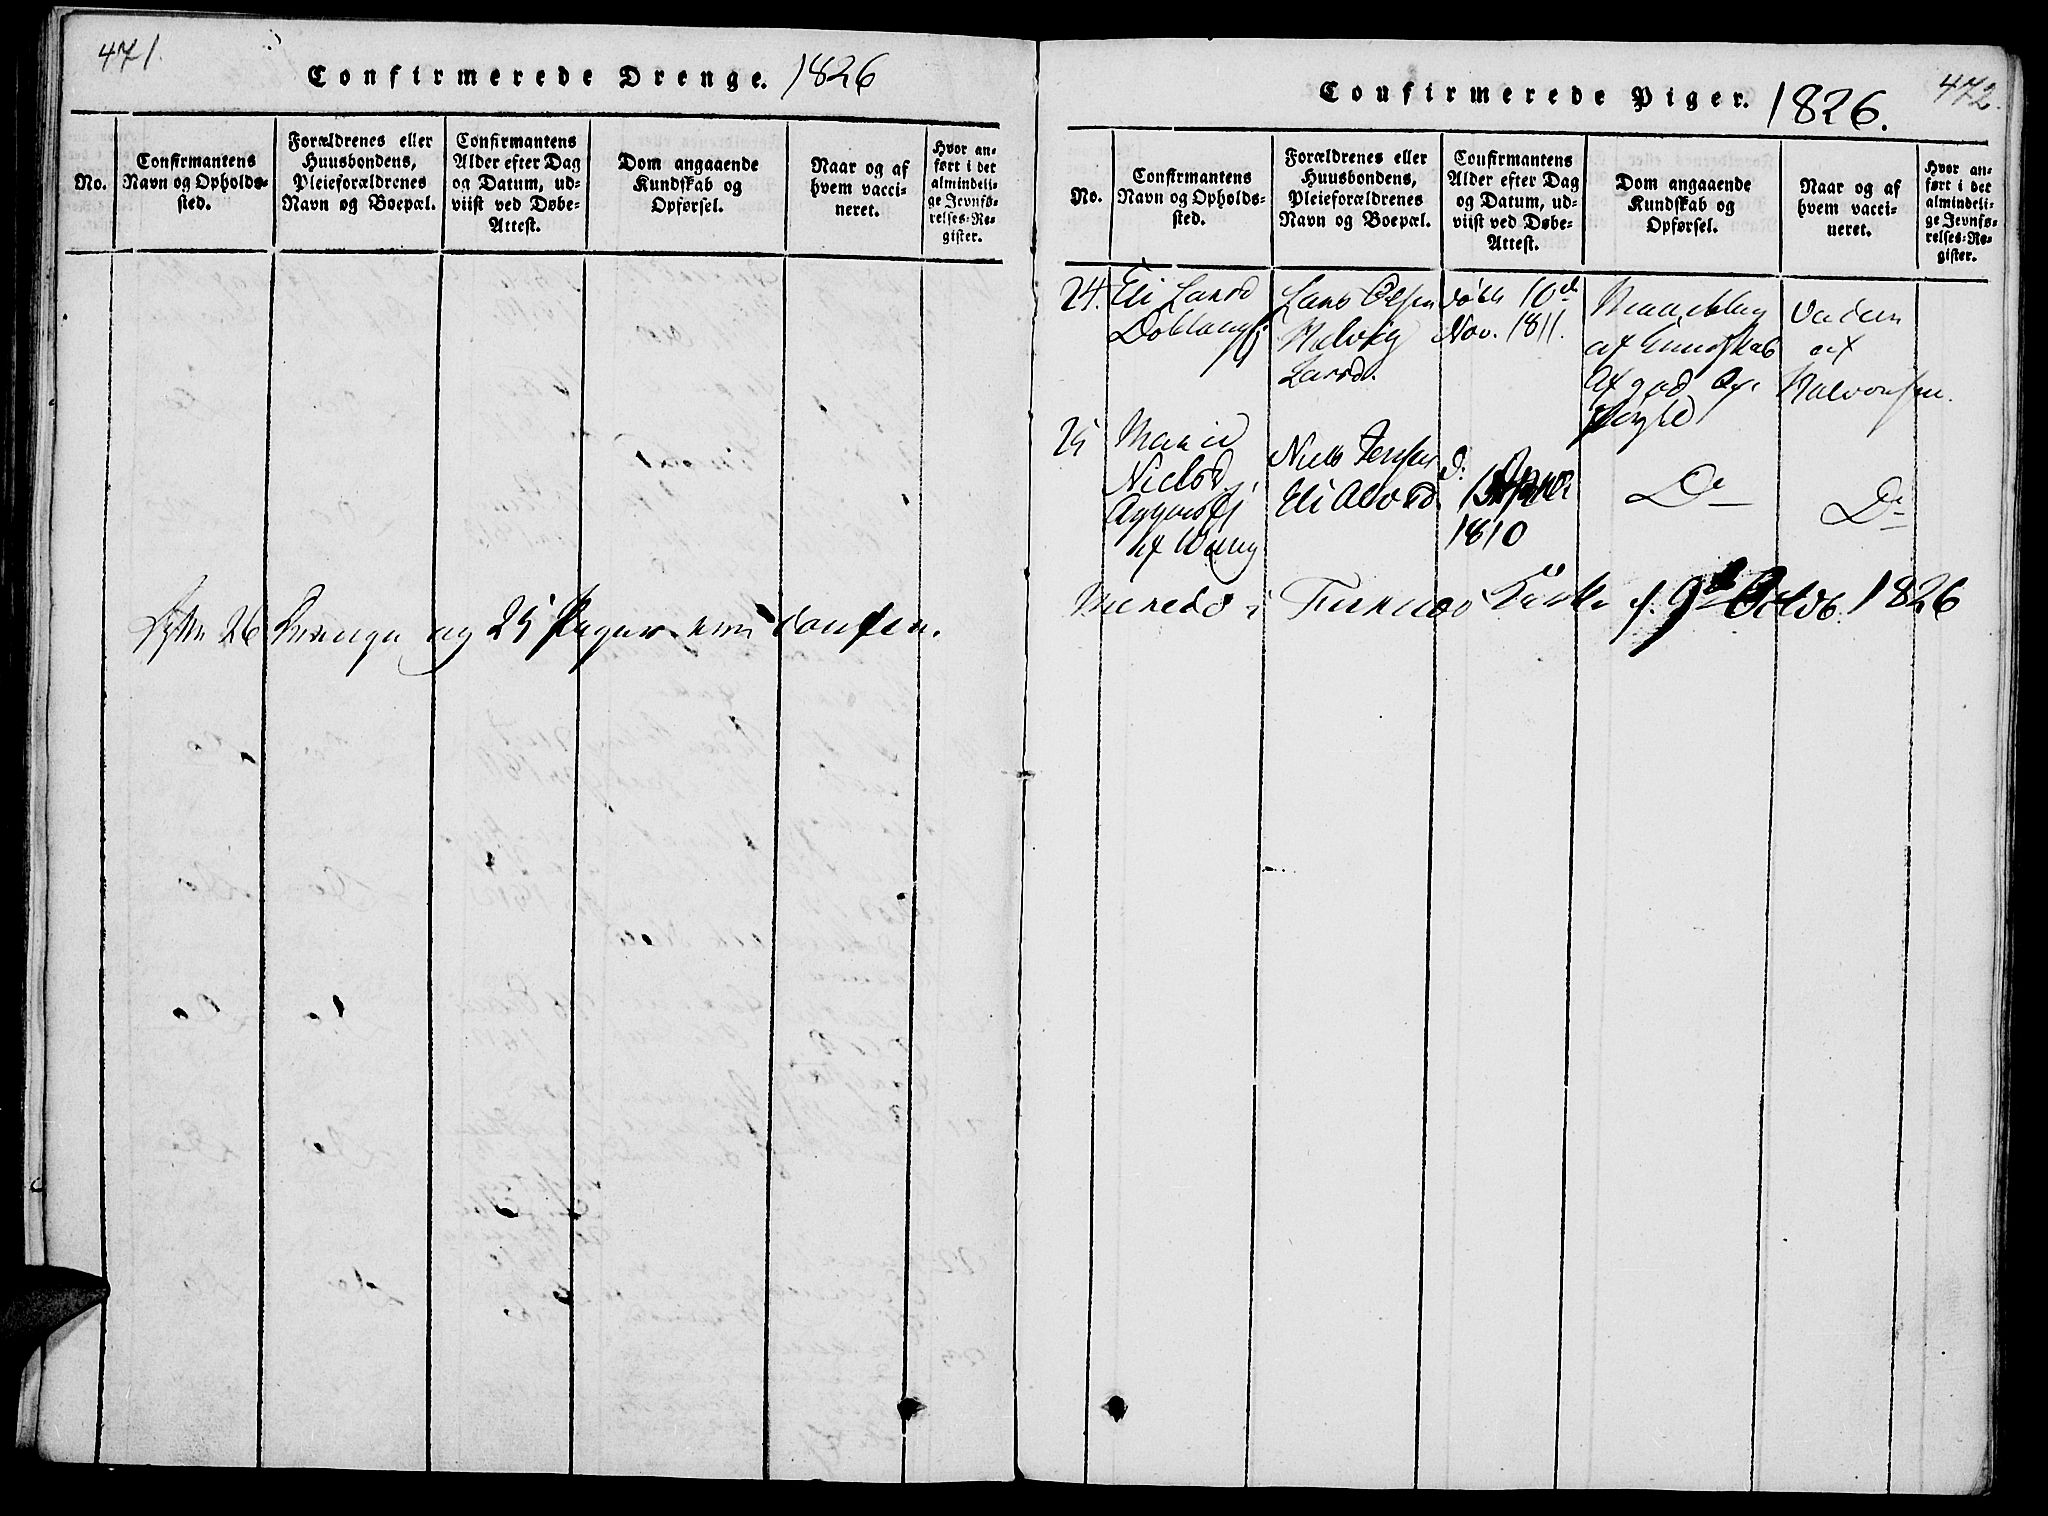 471.
Confirmerede Drenge. 1826
No.
Confirmantens
Navn og Opholds-
sted.
Forældrenes eller
Huusbondens,
Pleieforældrenes
Navn og Boepæl.
Confirmantens
Alder efter Dag
og Datum, ud-
viist ved Døbe-
Attest.
Dom angaaende
Kundskab og
Opførsel.
Naar og af
hvem vacci-
neret.
Hvor an-
ført i det
almindeli-
ge Jevnfø-
relses-Re-
gister.
26 Drenge og 25 Piger
472.
Confirmerede Piger. 1826.
No.
Confirmantens
Navn og Opholds-
sted.
Forældrenes eller
Huusbondens,
Pleieforældrenes
Navn og Boepæl.
Confirmantens
Alder efter Dag
og Datum, ud-
viist ved Døbe-
Attest.
Dom angaaende
Kundskab og
Opførsel.
Naar og af
hvem vacci-
neret.
Hvor an-
ført i det
almindeli-
ge Jevnfø-
relses-Re-
gister.
24.
Eli Larsd
Lars Olsen
Larsd.
døbt 10d
Nov. 1811.
af Kundskab
af god Op-
af
Halvorsen.
25
Marie
Nielsd
af
Niels Jensen
Eli
d.
1810
Do
Do
i Kirke d. 9d Octob. 1826